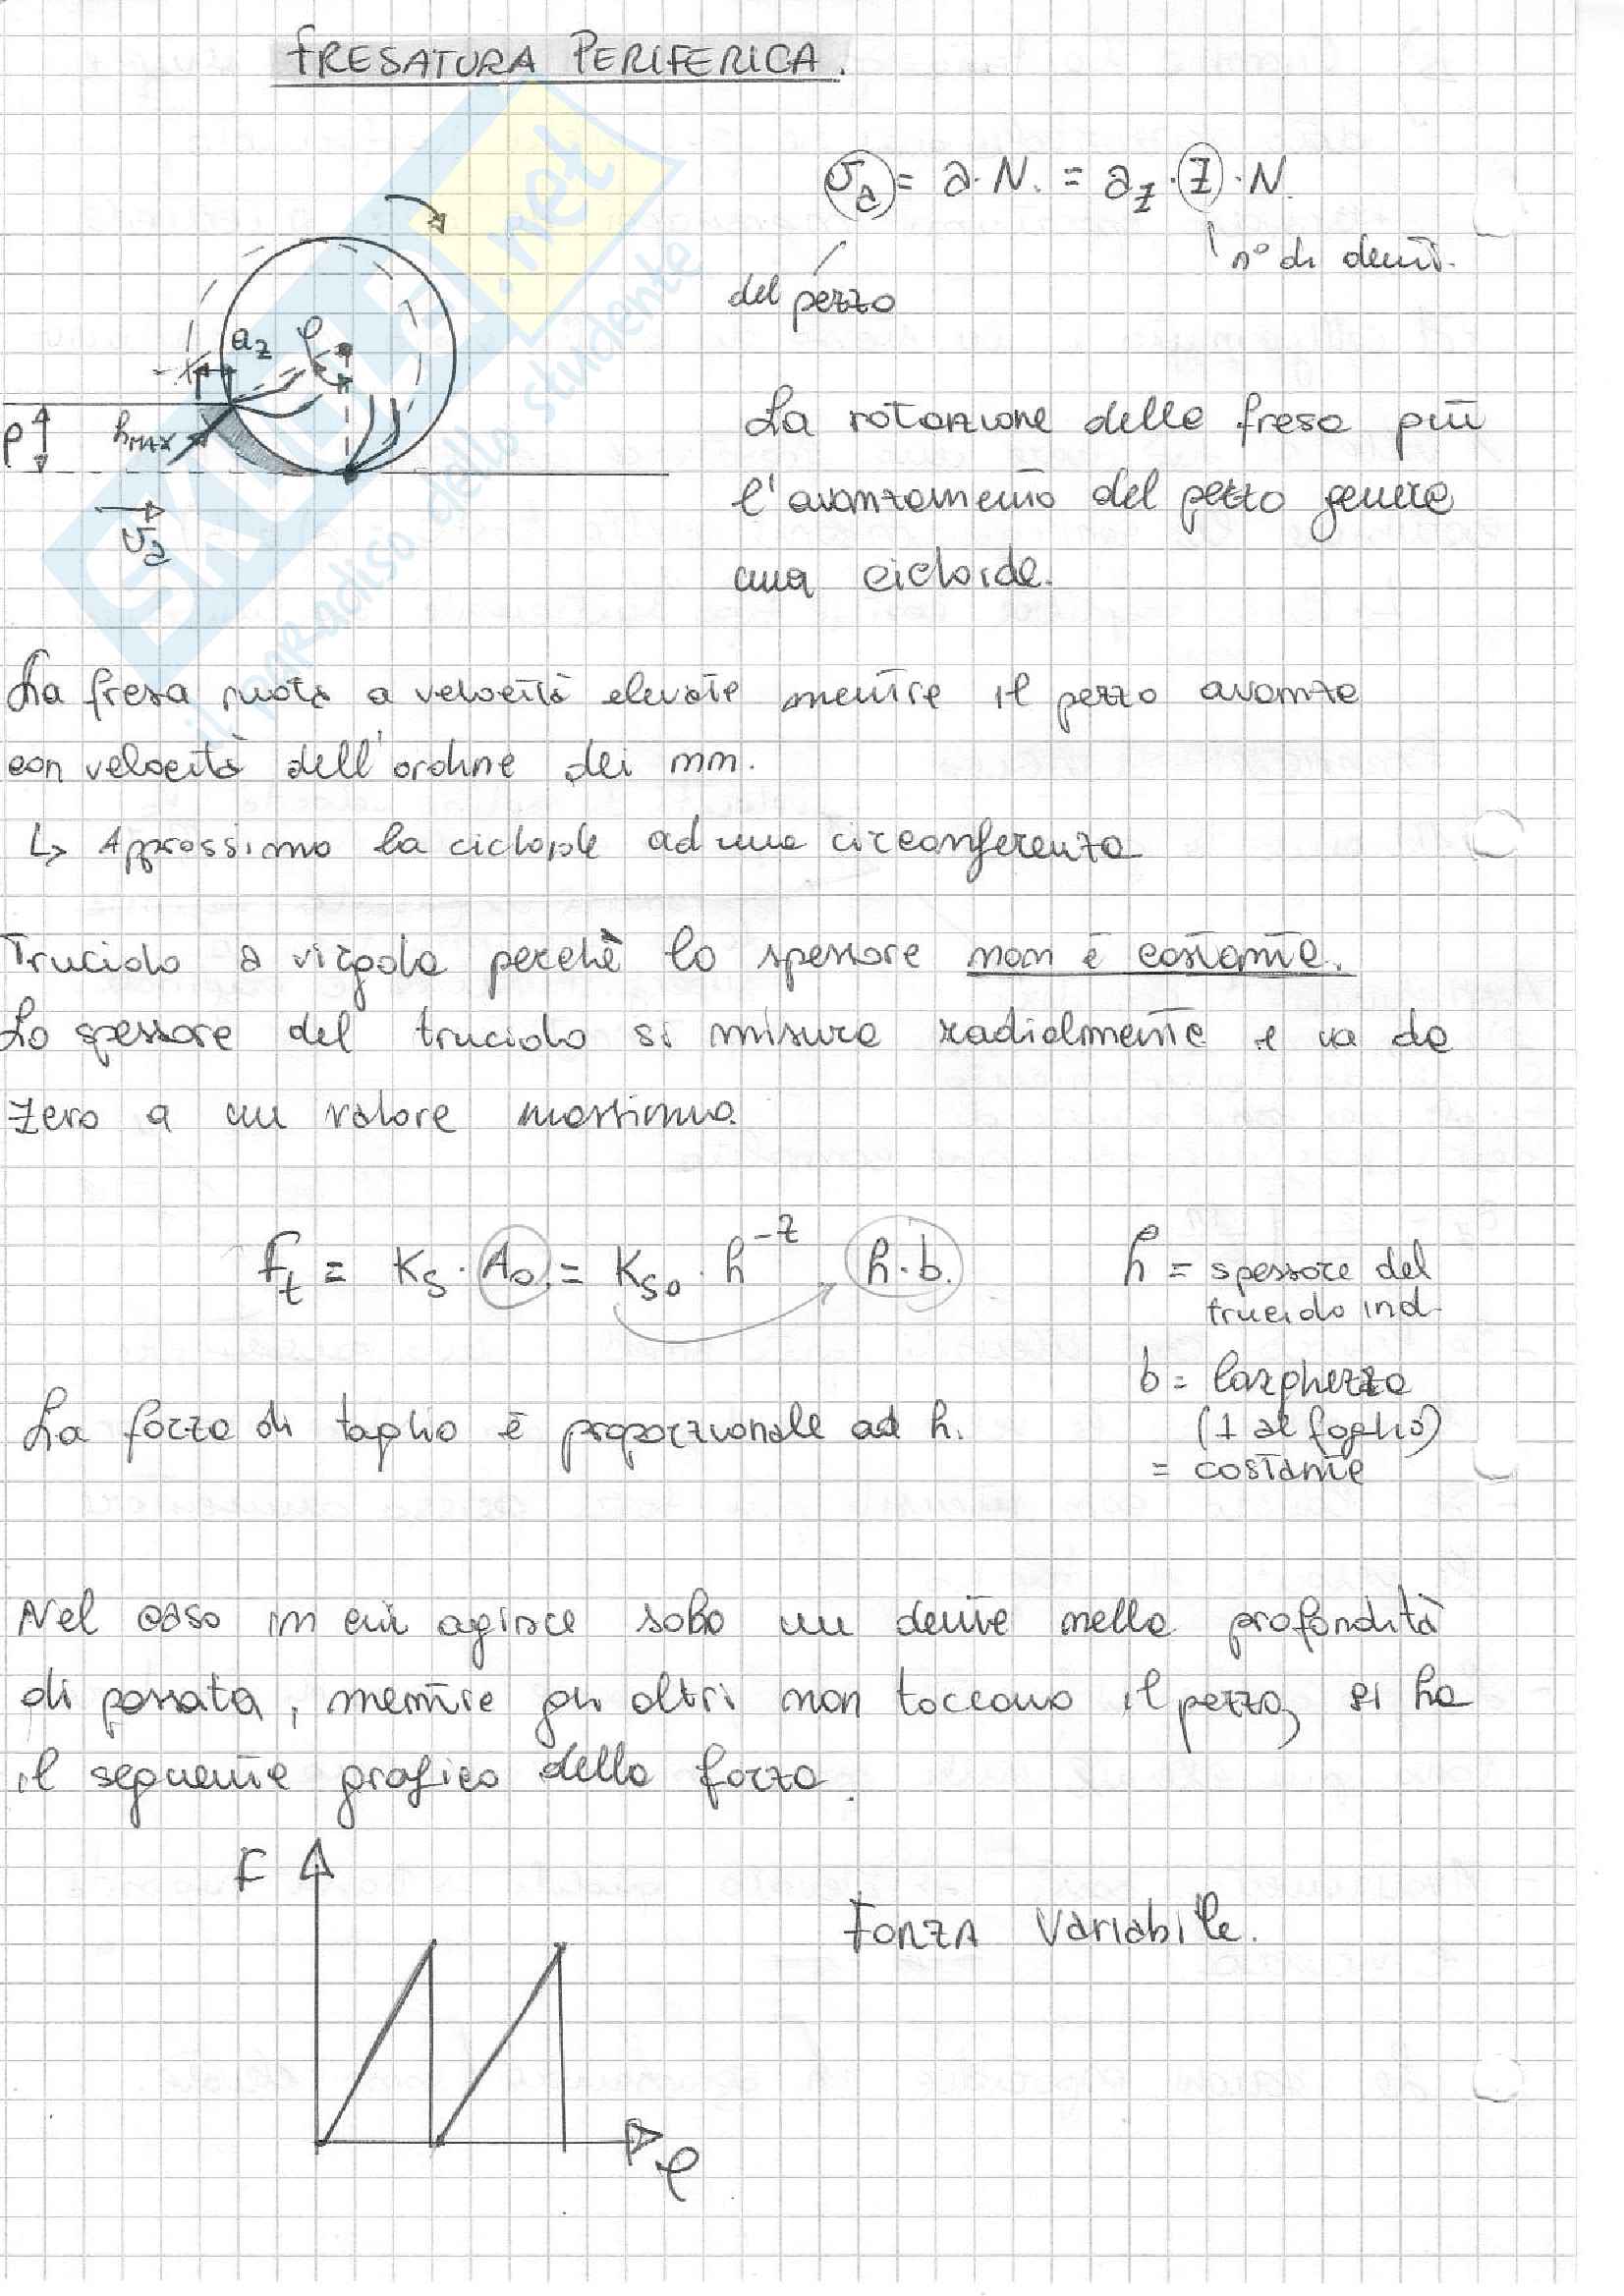 FRESATURA PERIFERICA.
va = a·N. = az·Z·N.
n° di denti.
del pezzo
φ
az
p
hMAX
va
La rotazione della fresa più
l'avanzamento del pezzo genera
una cicloide.
La fresa ruota a velocità elevate mentre il pezzo avanza
con velocità dell'ordine dei mm.
↳ Approssimo la cicloide ad una circonferenza
Truciolo a virgola perchè lo spessore non è costante.
Lo spessore del truciolo si misura radialmente e va da
zero a un valore massimo.
Ft = Ks·A0 = Ks0·h^-z h·b.
h = spessore del
truciolo ind.
b = larghezza
(⊥ al foglio)
= costante
La forza di taglio è proporzionale ad h.
Nel caso in cui agisce solo un dente nella profondità
di passata, mentre gli altri non toccano il pezzo, si ha
il seguente grafico della forza.
F
Forza Variabile.
φ
SKUOLA.net
il paradiso dello studente